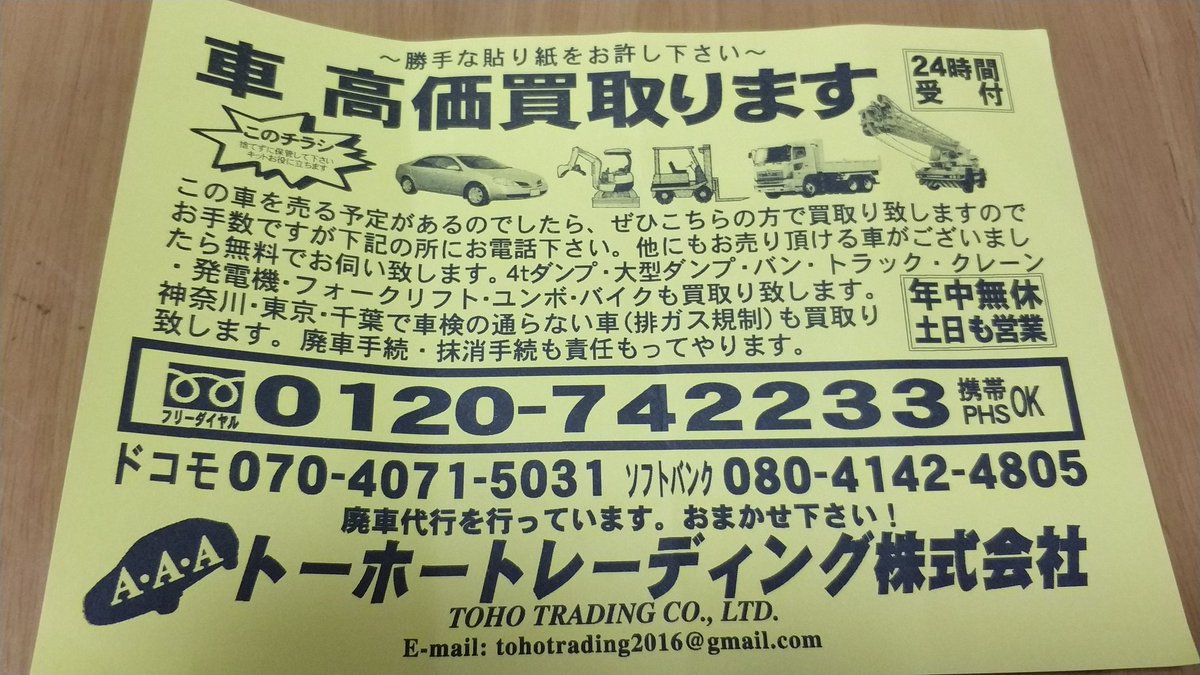 ～勝手な貼り紙をお許し下さい～
車 高価買取ります
24時間
受付
このチラシ
捨てずに保管して下さい
キットお役に立ちます
この車を売る予定があるのでしたら、ぜひこちらの方で買取り致しますので
お手数ですが下記の所にお電話下さい。他にもお売り頂ける車がございまし
たら無料でお伺い致します。4tダンプ・大型ダンプ・バン・トラック・クレーン
・発電機・フォークリフト・ユンボ・バイクも買取り致します。
神奈川・東京・千葉で車検の通らない車(排ガス規制)も買取り
致します。廃車手続・抹消手続も責任もってやります。
年中無休
土日も営業
フリーダイヤル
0120-742233
携帯
PHS OK
ドコモ 070-4071-5031 ソフトバンク 080-4142-4805
廃車代行を行っています。おまかせ下さい！
A・A・A
トーホートレーディング株式会社
TOHO TRADING CO., LTD.
E-mail: tohotrading2016@gmail.com